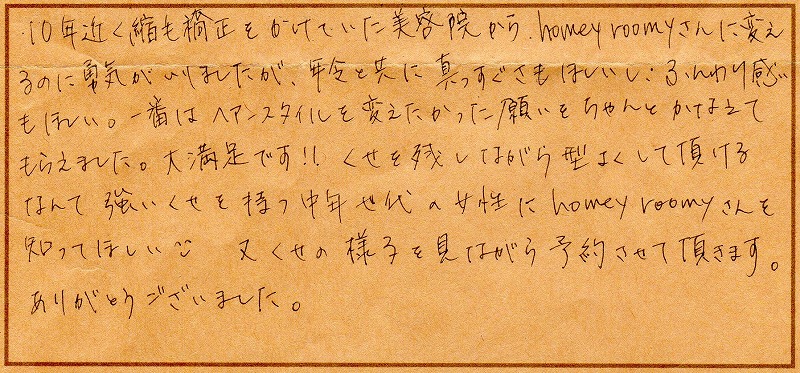 10年近く縮毛矯正をかけていた美容院から、homey roomyさんに変え
るのに勇気がいりましたが、年令と共に真っすぐさもほしいし、ふんわり感
もほしい。一番はヘアースタイルを変えたかった願いをちゃんとかなえて
もらえました。大満足です!! くせを残しながら型よくして頂ける
なんて強いくせを持つ中年世代の女性にhomey roomyさんを
知ってほしい 又くせの様子を見ながら予約させて頂きます。
ありがとうございました。